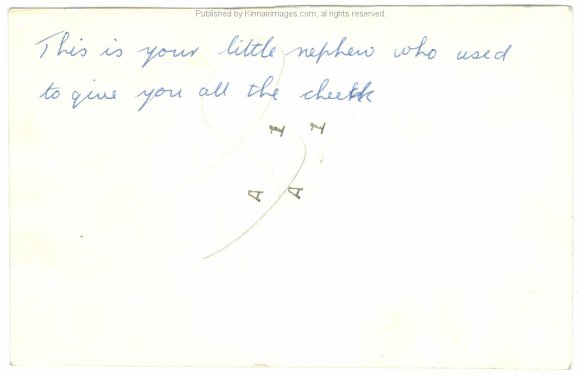 Published by Kinnairimages.com, all rights reserved.
This is your little nephew who used
to give you all the cheek
1 1
A A